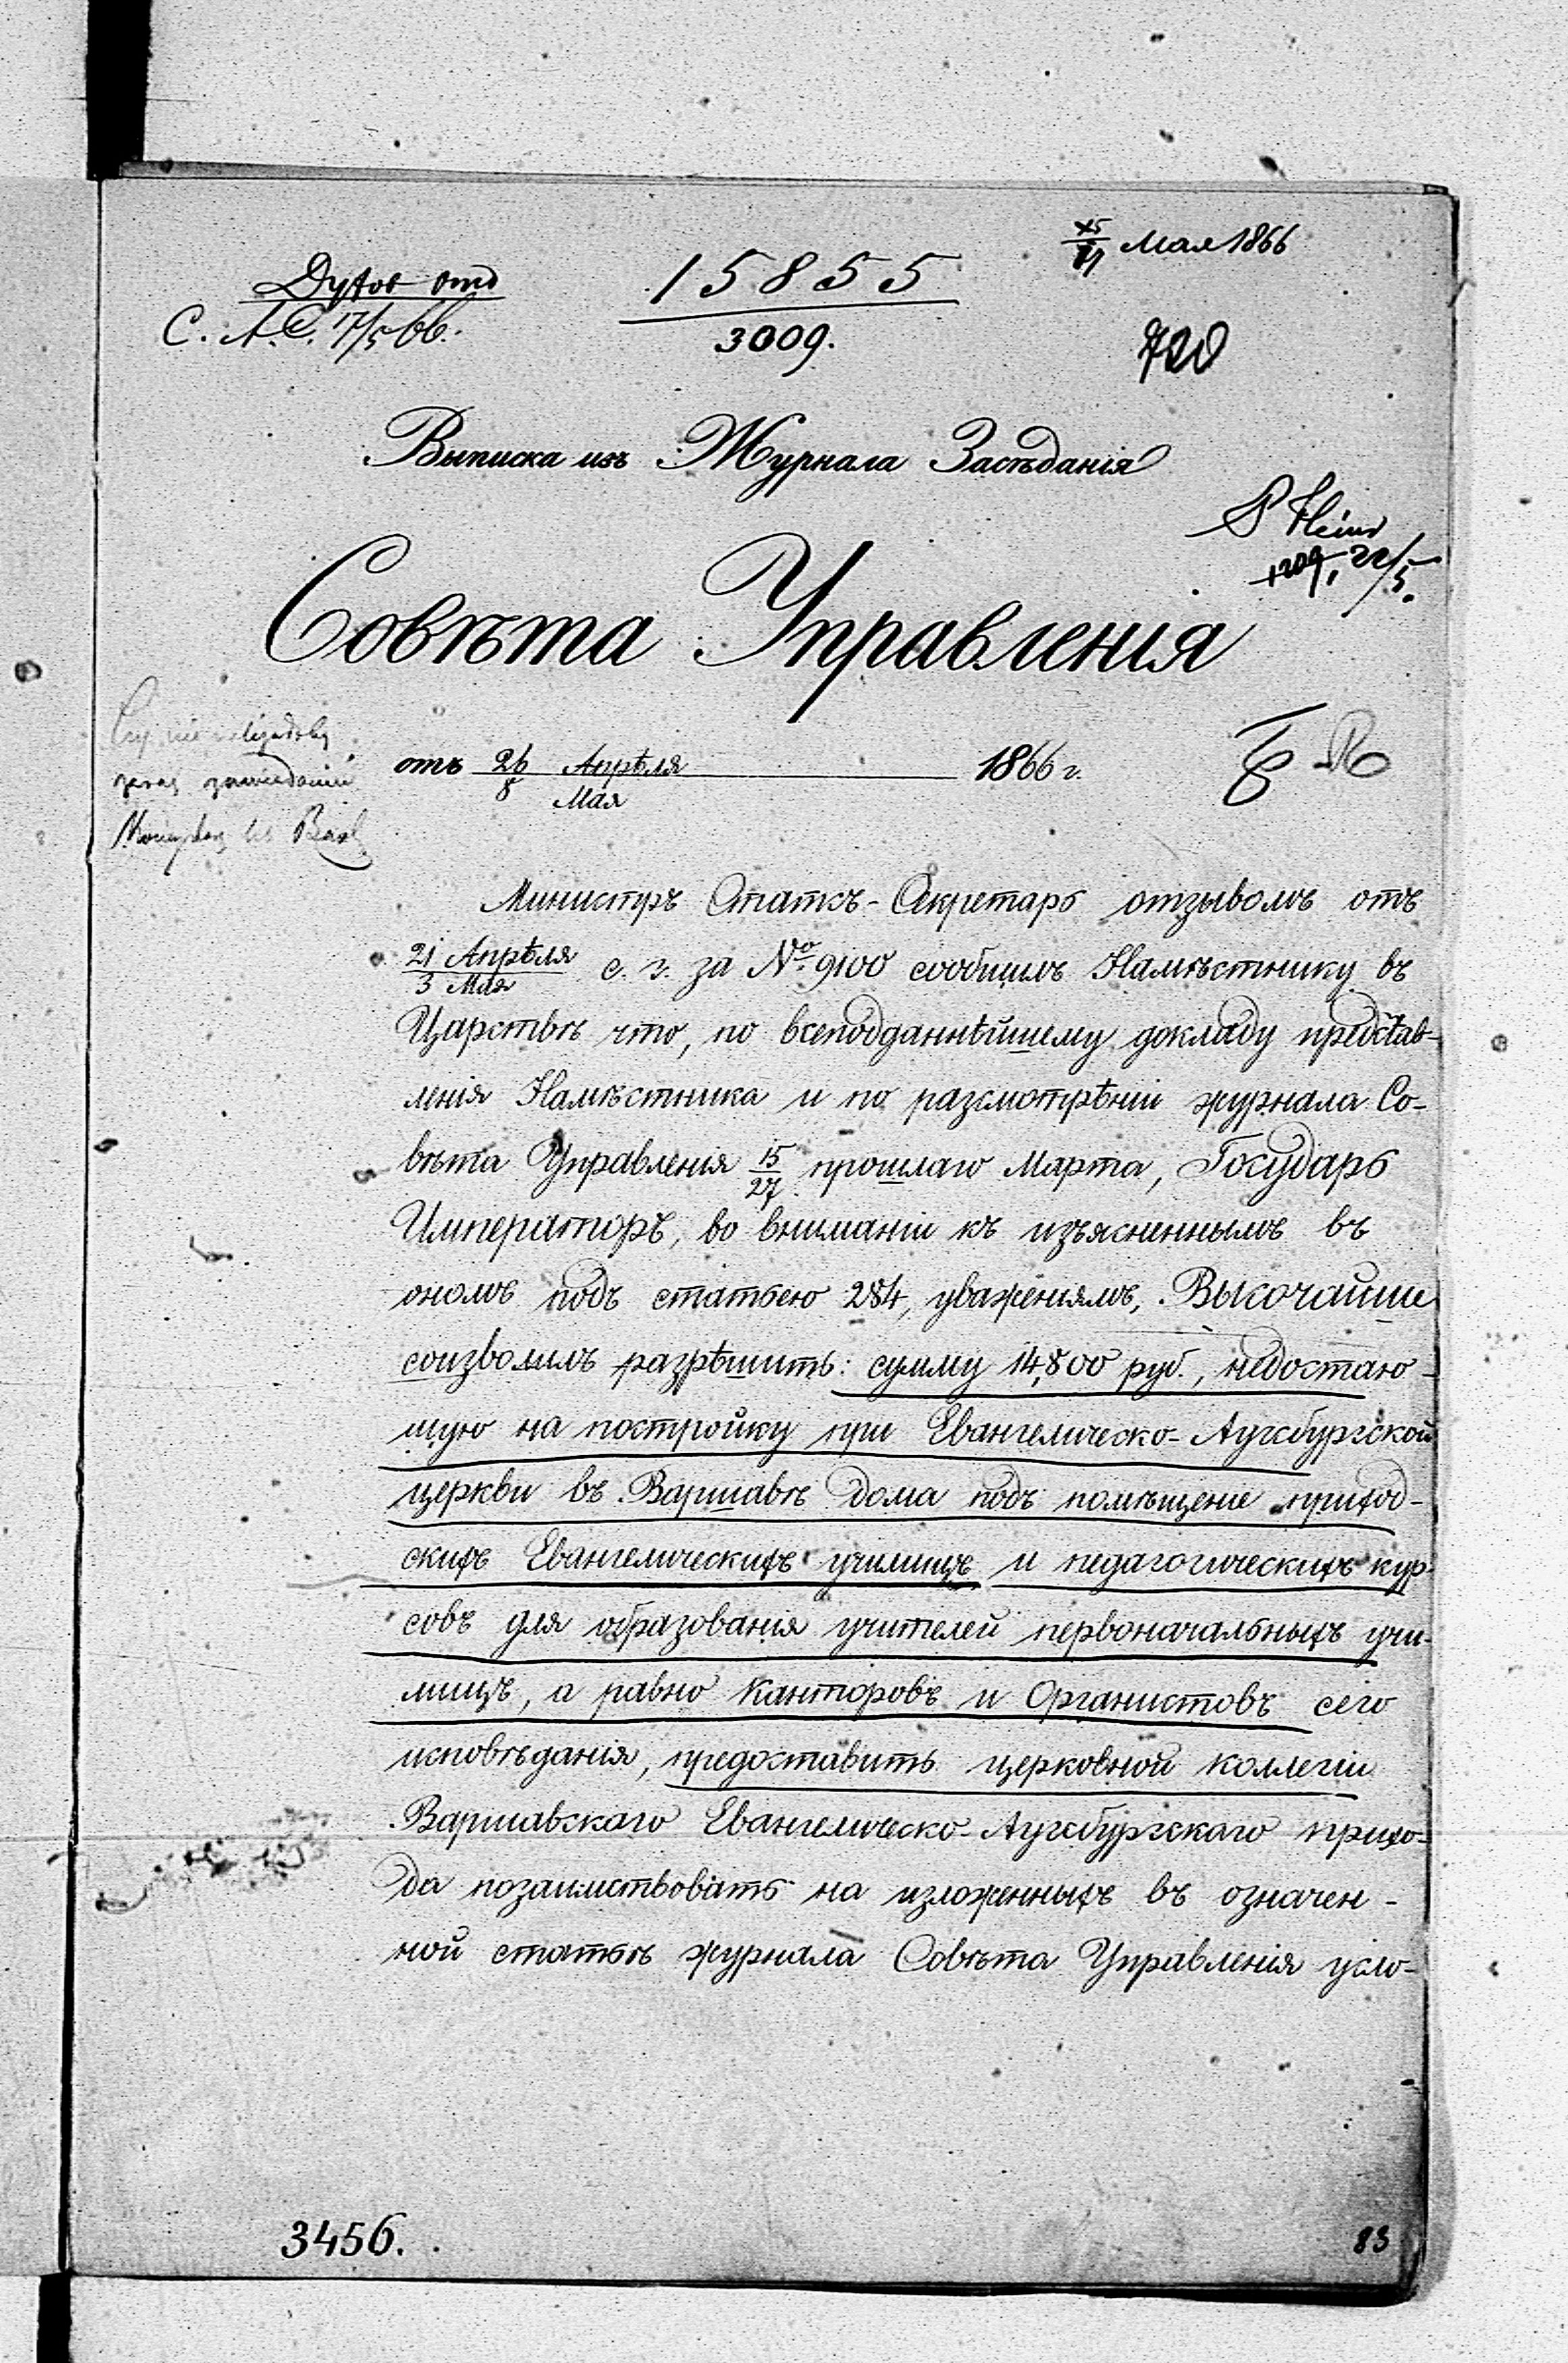 15/27 Мая 1866
Духов отд
15855
С. А. С. 17/5 66.
3009.
720
Выписка изъ Журнала Засѣданія
22/5.
Совѣта Управленія
отъ 26 Апрѣля / 8 Мая 1866 г.
Министръ Статсъ-Секретарь отзывомъ отъ
21 Апрѣля / 3 Мая с. г. за № 9100 сообщилъ Намѣстнику въ
Царствѣ что, по всеподданнѣйшему докладу представ-
ленія Намѣстника и по разсмотрѣніи журнала Со-
вѣта Управленія 15/27 прошлаго Марта, Государь
Императоръ, во вниманіи къ изъясненнымъ въ
ономъ подъ статьею 284, уваженіямъ, Высочайше
соизволилъ разрѣшить: сумму 14,800 руб., недостаю-
щую на постройку при Евангелическо-Аугсбургской
церкви въ Варшавѣ дома подъ помѣщеніе приход-
скихъ Евангелическихъ училищъ и педагогическихъ кур-
совъ для образованія учителей первоначальныхъ учи-
лищъ, а равно Канторовъ и Органистовъ сего
исповѣданія, предоставить церковной коллегіи
Варшавскаго Евангелическо-Аугсбургскаго прихо-
да позаимствовать на изложенныхъ въ означен-
ной статьѣ журнала Совѣта Управленія усло-
3456.
83